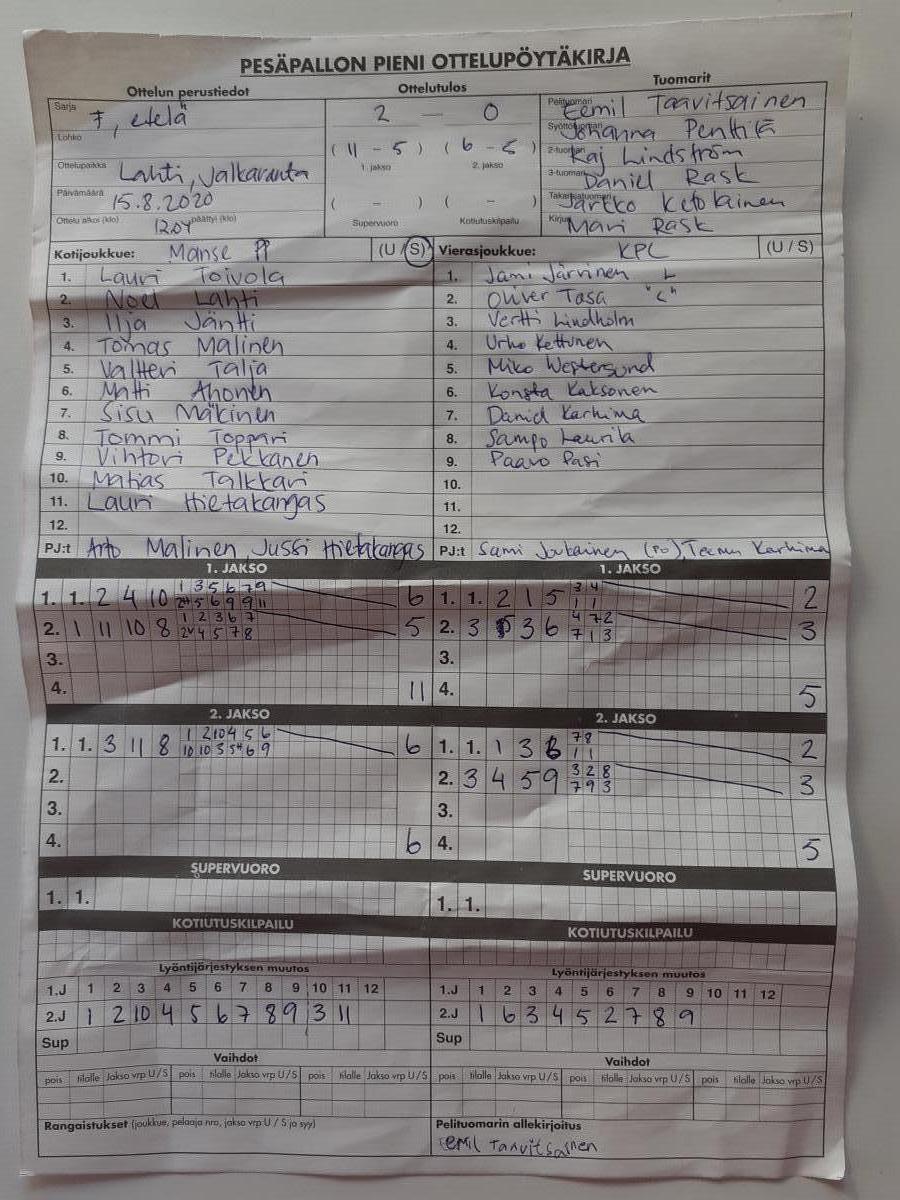 PESÄPALLON PIENI OTTELUPÖYTÄKIRJA
Ottelun perustiedot Ottelutulos Tuomarit
Sarja F, etelä
Lohko
Ottelupaikka Lahti, Jalkaranta
Päivämäärä 15.8.2020
Ottelu alkoi (klo) 12.04 päättyi (klo)
2 — 0
( 11 - 5 ) ( 6 - 5 )
1. jakso 2. jakso
( - ) ( - )
Supervuoro Kotiutuskilpailu
Pelituomari Eemil Taavitsainen
Syöttötuomari Johanna Penttilä
2-tuomari Kaj Lindström
3-tuomari Daniel Rask
Takarajatuomari Jarkko Ketolainen
Kirjuri Mari Rask
Kotijoukkue: Manse PP (U/S)
1. Lauri Toivola
2. Noel Lahti
3. Ilja Jäntti
4. Tomas Malinen
5. Valtteri Talja
6. Matti Ahonen
7. Sisu Mäkinen
8. Tommi Toppari
9. Vihtori Pekkanen
10. Matias Talkkari
11. Lauri Hietakangas
12.
PJ:t Arto Malinen, Jussi Hietakangas
Vierasjoukkue: KPL (U/S)
1. Jami Järvinen L
2. Oliver Tasa "C"
3. Vertti Lindholm
4. Urho Kettunen
5. Miko Westersund
6. Konsta Kaksonen
7. Daniel Karhima
8. Sampo Laurila
9. Paavo Pasi
10.
11.
12.
PJ:t Sami Joukainen (PJ), Teemu Karhima
1. JAKSO
1. 1. 2 4 10 1 3 5 6 7 9 6
5 6 9 9 11
2. 1 11 10 8 1 2 3 6 7 5
4 5 7 8
3.
4. 11
1. JAKSO
1. 1. 2 1 5 3 4 2
1 1
2. 3 5 3 6 4 7 2 3
7 1 3
3.
4. 5
2. JAKSO
1. 1. 3 11 8 1 2 10 4 5 6 6
10 10 3 5 6 9
2.
3.
4. 6
2. JAKSO
1. 1. 1 3 6 7 8 2
1 1
2. 3 4 5 9 3 2 8 3
7 9 3
3.
4. 5
SUPERVUORO
1. 1.
SUPERVUORO
1. 1.
KOTIUTUSKILPAILU
KOTIUTUSKILPAILU
Lyöntijärjestyksen muutos
1.J 1 2 3 4 5 6 7 8 9 10 11 12
2.J 1 2 10 4 5 6 7 8 9 3 11
Sup
Lyöntijärjestyksen muutos
1.J 1 2 3 4 5 6 7 8 9 10 11 12
2.J 1 6 3 4 5 2 7 8 9
Sup
Vaihdot
pois tilalle Jakso vrp U/S pois tilalle Jakso vrp U/S pois tilalle Jakso vrp U/S
Vaihdot
pois tilalle Jakso vrp U/S pois tilalle Jakso vrp U/S pois tilalle Jakso vrp U/S
Rangaistukset (joukkue, pelaaja nro, jakso vrp U / S ja syy)
Pelituomarin allekirjoitus
Eemil Taavitsainen